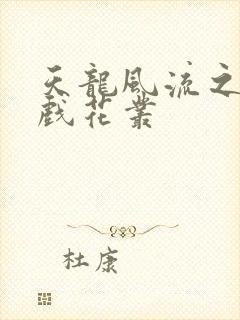 天龍風流之
戲花叢
杜康